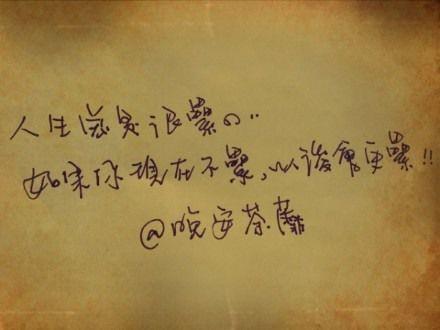 人生總是很累の..
如果你現在不累、以後會更累!!
@晚安荼蘼